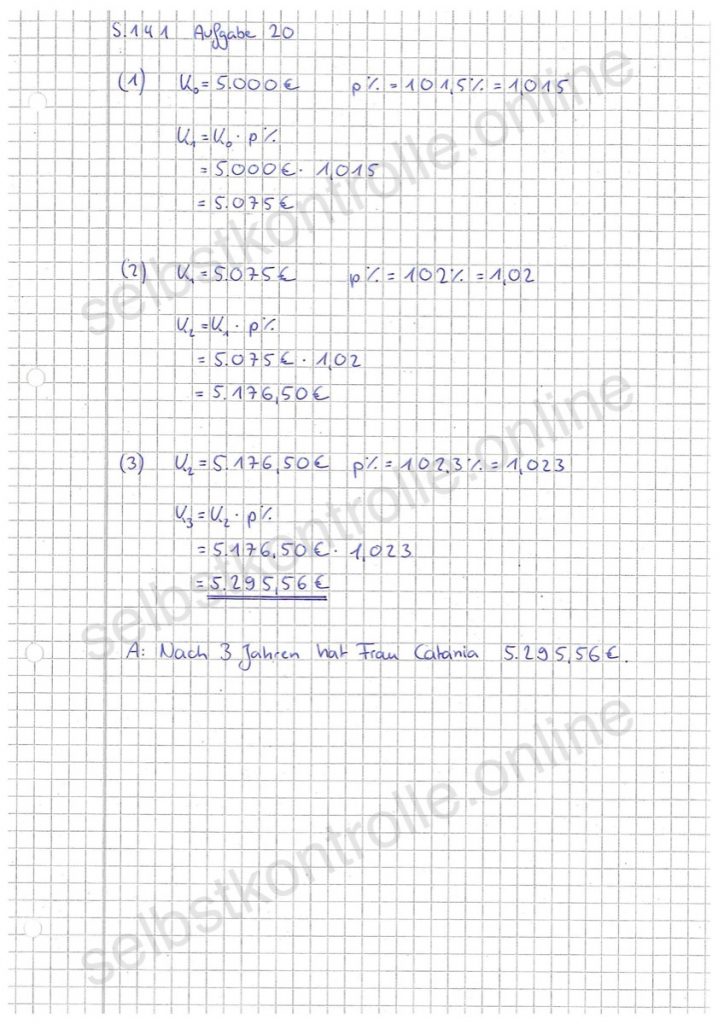 S.141 Aufgabe 20
(1) K₀ = 5.000€ p% = 101,5% = 1,015
K₁ = K₀ · p%
= 5.000€ · 1,015
= 5.075€
(2) K₁ = 5.075€ p% = 102% = 1,02
K₂ = K₁ · p%
= 5.075€ · 1,02
= 5.176,50€
(3) K₂ = 5.176,50€ p% = 102,3% = 1,023
K₃ = K₂ · p%
= 5.176,50€ · 1,023
= 5.295,56€
A: Nach 3 Jahren hat Frau Catania 5.295,56€.
selbstkontrolle.online
selbstkontrolle.online
selbstkontrolle.online